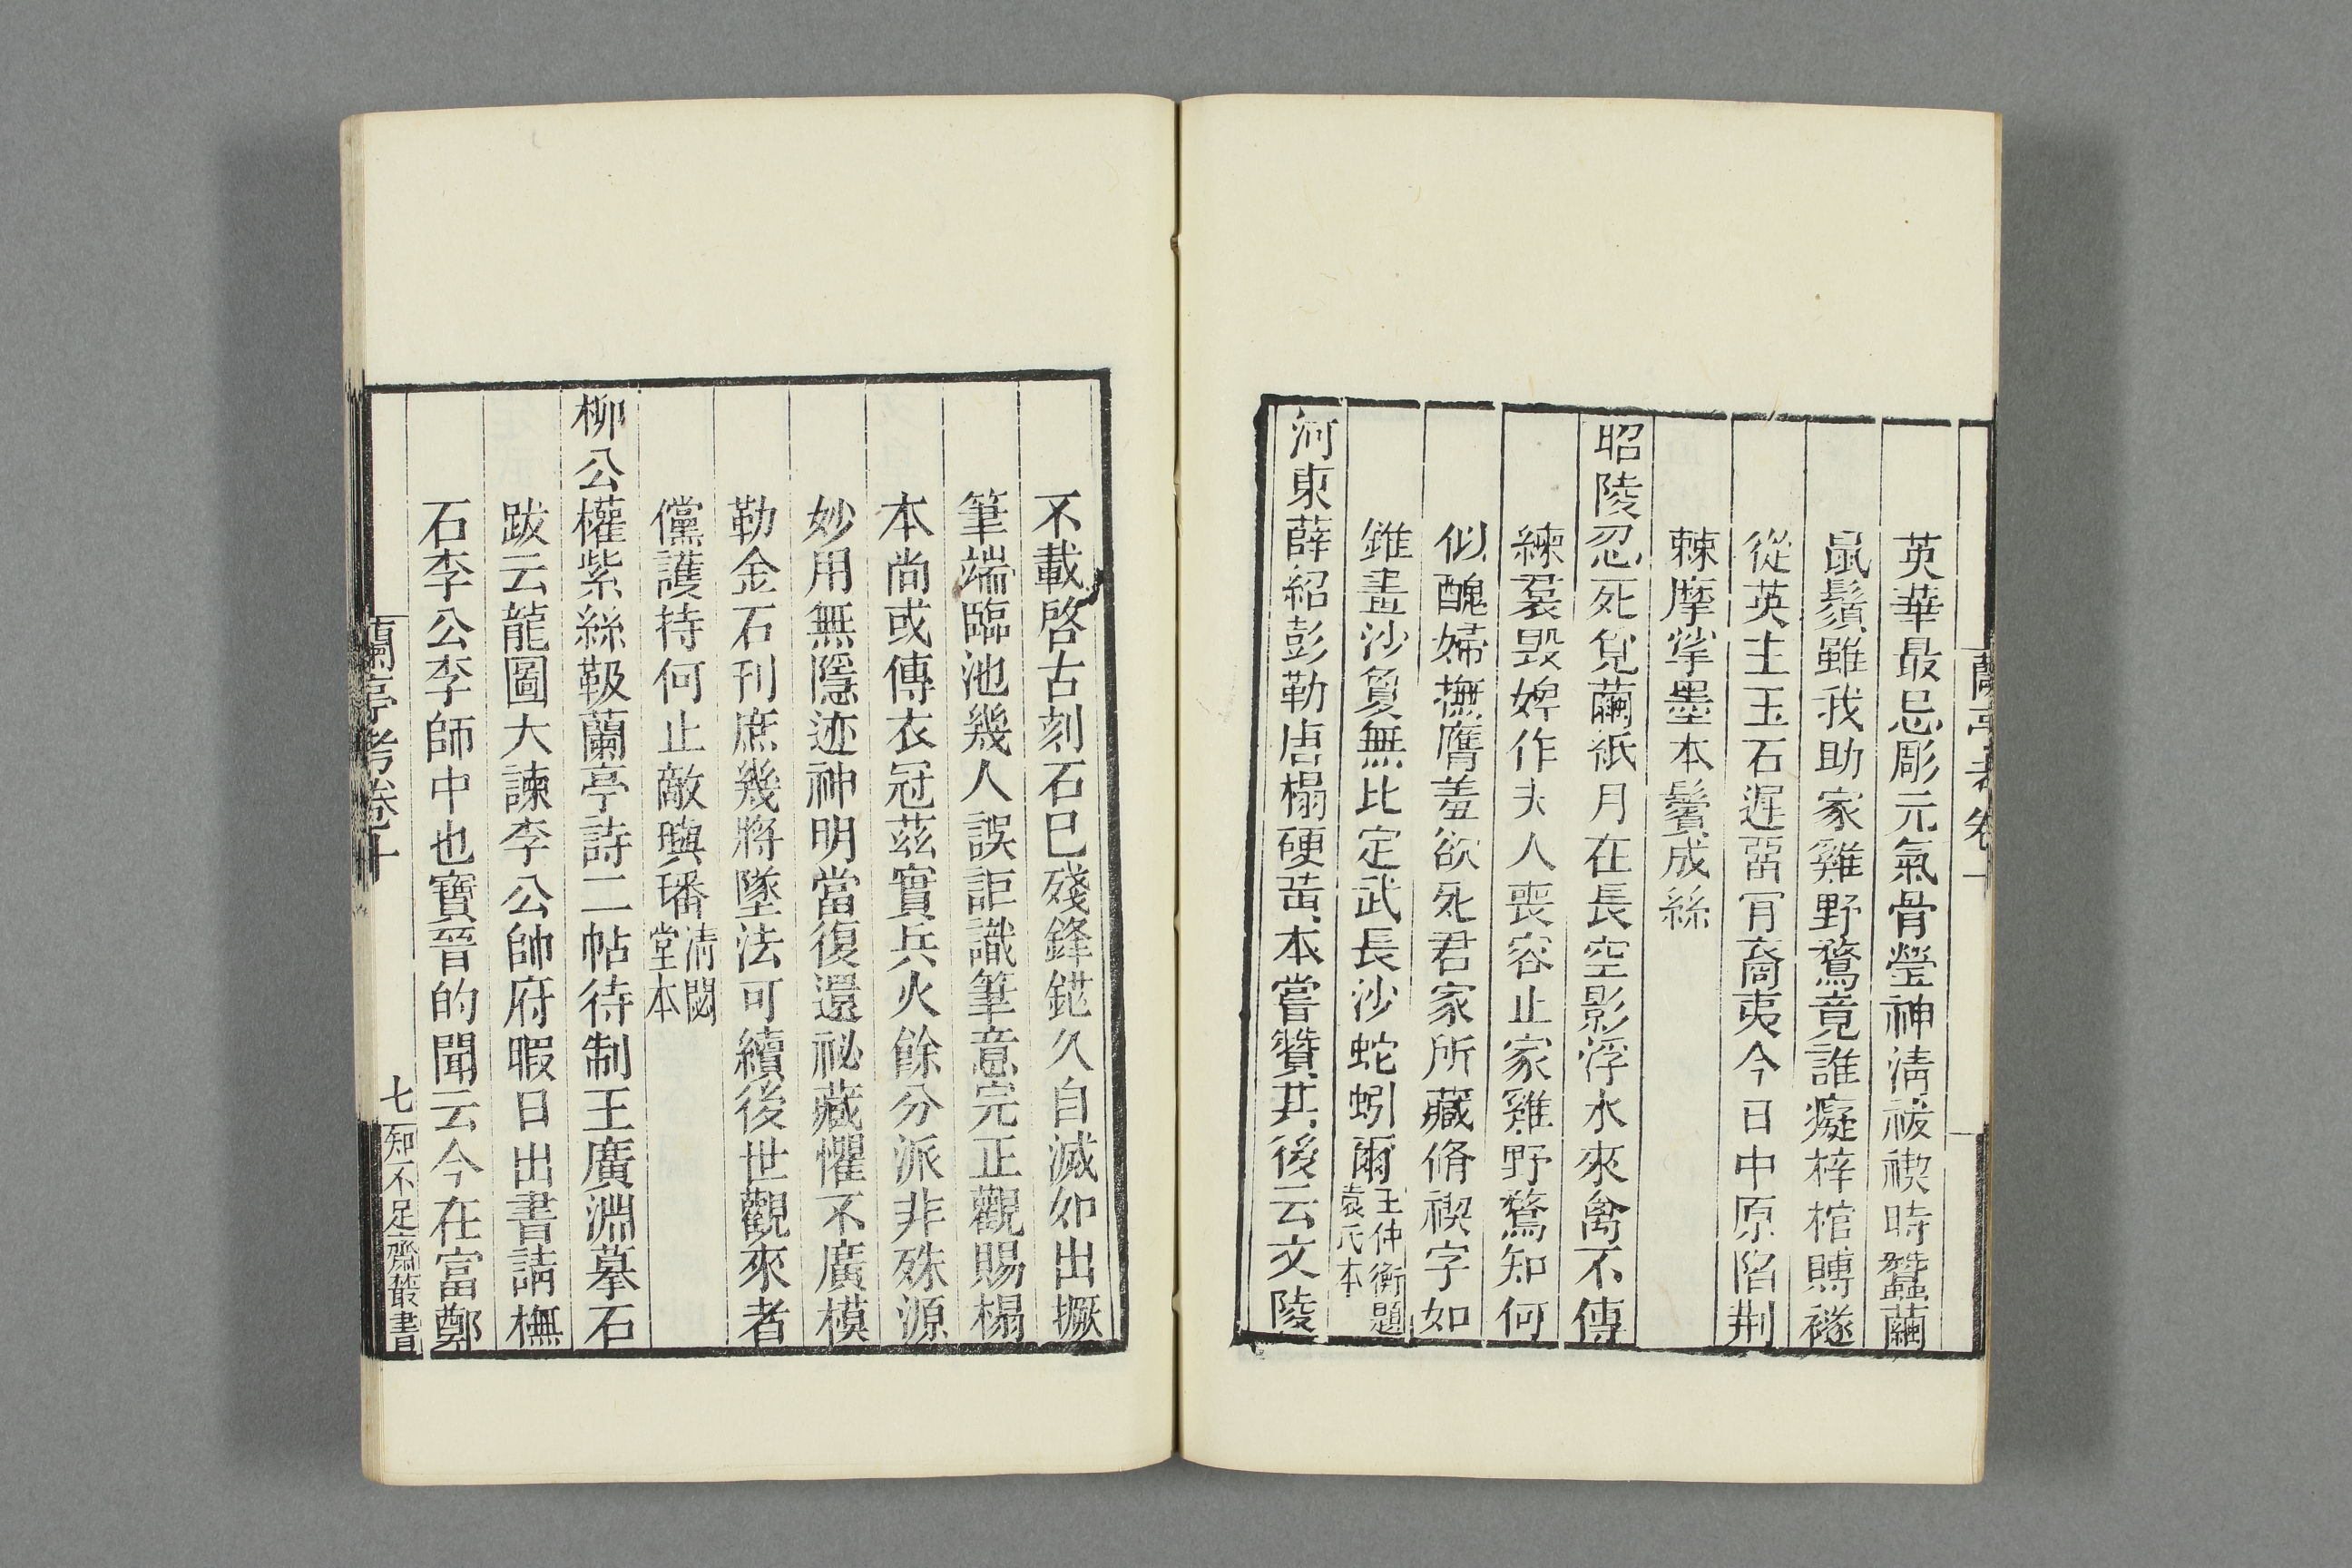 蘭亭考卷十
英華最忌彫元氣骨瑩神淸祓禊時蠶繭
鼠鬚雖我助家雞野鶩竟誰癡梓棺賻襚
從英主玉石遲留胃裔夷今日中原陷荆
棘摩挲墨本鬢成絲
昭陵忍死覓繭紙月在長空影浮水來禽不傳
練裠毀婢作夫人喪容止家雞野鶩知何
似醜婦撫膺羞欲死君家所藏脩禊字如
錐畫沙夐無比定武長沙蛇蚓爾王仲衡題袁氏本
河東薛紹彭勒唐榻硬黃本嘗贊其後云文陵
不載啓古刻石巳殘鋒鋩久自滅如出撅
筆端臨池幾人誤詎識筆意完正觀賜榻
本尚或傳衣冠茲實兵火餘分派非殊源
妙用無隱迹神明當復還祕藏懼不廣模
勒金石刊庶幾將墜法可續後世觀來者
儻護持何止敵璵璠淸閟堂本
柳公權紫絲靸蘭亭詩二帖待制王廣淵摹石
跋云龍圖大諫李公帥府暇日出書請橅
石李公李師中也寶晉的聞云今在富鄭
蘭亭考卷十
七
知不足齋叢書